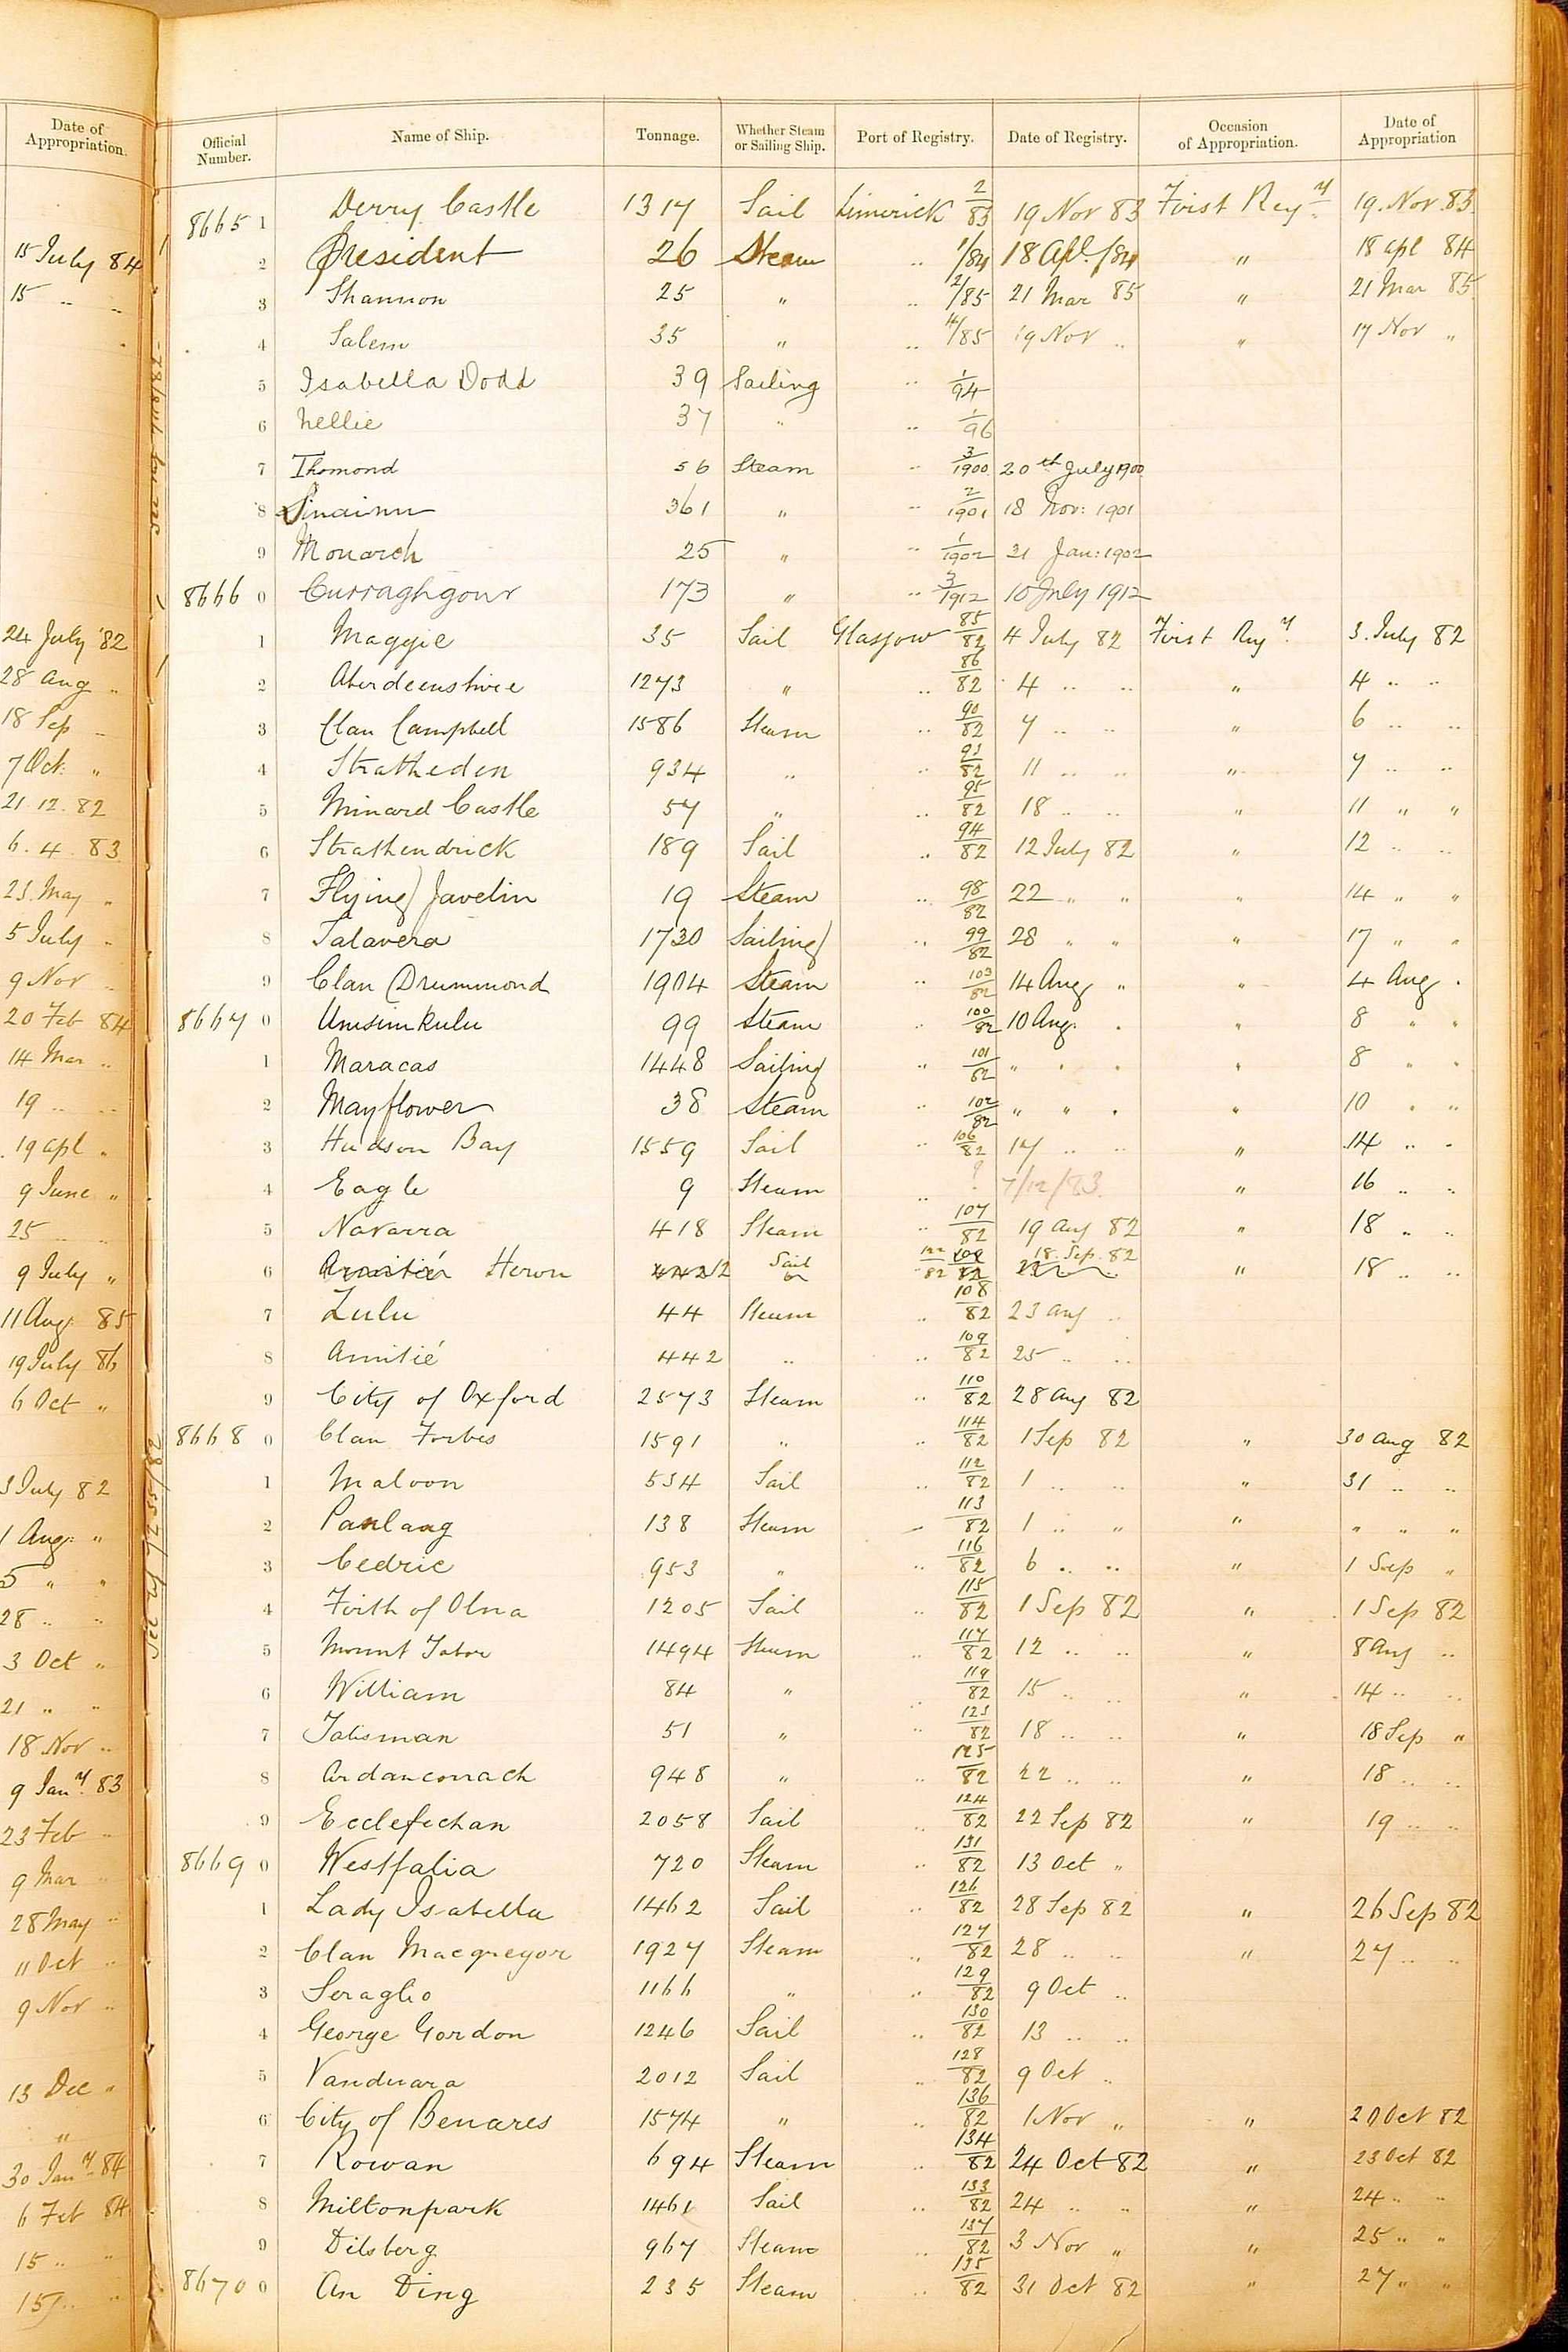 Date of Appropriation.
15 July 84
15 .. ..
24 July '82
28 Aug ..
18 Sep ..
7 Oct. "
21.12.82
6.4.83
23 May "
5 July ..
9 Nov ..
20 Feb 84
14 Mar ..
19 .. ..
19 apl "
9 June "
25 .. ..
9 July "
11 Aug 85
19 July 86
6 Oct "
3 July 82
1 Aug. "
5 " "
28 .. ..
3 Oct "
21 .. ..
18 Nov ..
9 Jany. 83
23 Feb ..
9 Mar ..
28 May ..
11 Oct ..
9 Nov ..
13 Dec "
"
30 Jany 84
6 Feb 84
15 .. ..
15 .. ..
Official Number. Name of Ship. Tonnage. Whether Steam or Sailing Ship. Port of Registry. Date of Registry. Occasion of Appropriation. Date of Appropriation
8665 1 Derry Castle 1317 Sail Limerick 2/83 19 Nov 83 First Regy. 19. Nov. 83.
2 President 26 Steam .. 1/84 18 Apl. /84 " 18 apl 84
3 Shannon 25 " .. 2/85 21 Mar 85 " 21 Mar 85
4 Salem 35 " .. 4/85 19 Nov .. " 17 Nov "
5 Isabella Dodd 39 Sailing .. 1/94
6 Nellie 37 " .. 1/96
7 Thomond 56 Steam .. 3/1900 20th July 1900
8 Sinainn 361 " .. 2/1901 18 Nov: 1901
9 Monarch 25 " .. 1/1902 21 Jan: 1902
8666 0 Curraghgour 173 " .. 3/1912 10 July 1912
1 Maggie 35 Sail Glasgow 85/82 4 July 82 First Regy. 3. July 82
2 Aberdeenshire 1273 " .. 86/82 4 .. .. " 4 .. ..
3 Clan Campbell 1586 Steam .. 90/82 7 .. .. " 6 .. ..
4 Stratheden 934 .. .. 93/82 11 .. .. " 7 .. ..
5 Minard Castle 57 " .. 95/82 18 .. .. " 11 " "
6 Strathendrick 189 Sail .. 94/82 12 July 82 " 12 .. ..
7 Flying Javelin 19 Steam .. 98/82 22 " " " 14 " "
8 Talavera 1730 Sailing .. 99/82 28 " " " 17 " "
9 Clan Drummond 1904 Steam .. 103/82 14 Aug " " 4 Aug .
8667 0 Umsimkulu 99 Steam 100/82 10 Aug. . " 8 " "
1 Maracas 1448 Sailing .. 101/82 " " " " 8 " "
2 Mayflower 38 Steam .. 102/82 " " " " 10 " "
3 Hudson Bay 1559 Sail .. 106/82 17 .. .. " 14 .. ..
4 Eagle 9 Steam .. ? 7/12/83 " 16 .. ..
5 Navarra 418 Steam .. 107/82 19 Aug 82 " 18 .. ..
6 Amitié Heron 442 12 Sail .. 122/82 108/82 18. Sep. 82 " 18 .. ..
7 Zulu 44 Steam .. 108/82 23 Aug ..
8 Amitié 442 .. .. 109/82 25 .. ..
9 City of Oxford 2573 Steam .. 110/82 28 Aug 82
8668 0 Clan Forbes 1591 .. .. 114/82 1 Sep 82 " 30 Aug 82
1 Maloon 534 Sail .. 112/82 1 .. .. " 31 .. ..
2 Panlaag 138 Steam .. 113/82 1 .. " " " " "
3 Cedric 953 " .. 116/82 6 .. .. " 1 Sep "
4 Firth of Olna 1205 Sail .. 115/82 1 Sep 82 " 1 Sep 82
5 Mount Tabor 1494 Steam .. 117/82 12 .. .. " 8 Aug ..
6 William 84 " .. 119/82 15 .. .. " 14 .. ..
7 Talisman 51 " .. 123/82 18 .. .. " 18 Sep "
8 Ardanconrach 948 " .. 125/82 22 .. .. " 18 .. ..
9 Ecclefechan 2058 Sail .. 124/82 22 Sep 82 " 19 .. ..
8669 0 Westfalia 720 Steam .. 131/82 13 Oct "
1 Lady Isabella 1462 Sail .. 126/82 28 Sep 82 " 26 Sep 82
2 Clan Macgregor 1927 Steam .. 127/82 28 .. .. " 27 .. ..
3 Seraglio 1166 " .. 129/82 9 Oct ..
4 George Gordon 1246 Sail .. 130/82 13 .. ..
5 Vanduara 2012 Sail .. 128/82 9 Oct ..
6 City of Benares 1574 " .. 136/82 1 Nov " " 20 Oct 82
7 Rowan 694 Steam .. 134/82 24 Oct 82 " 23 Oct 82
8 Miltonpark 1461 Sail .. 133/82 24 .. .. " 24 .. ..
9 Dilsberg 967 Steam .. 137/82 3 Nov " " 25 .. "
8670 0 An Ding 235 Steam .. 135/82 31 Oct 82 " 27 " "